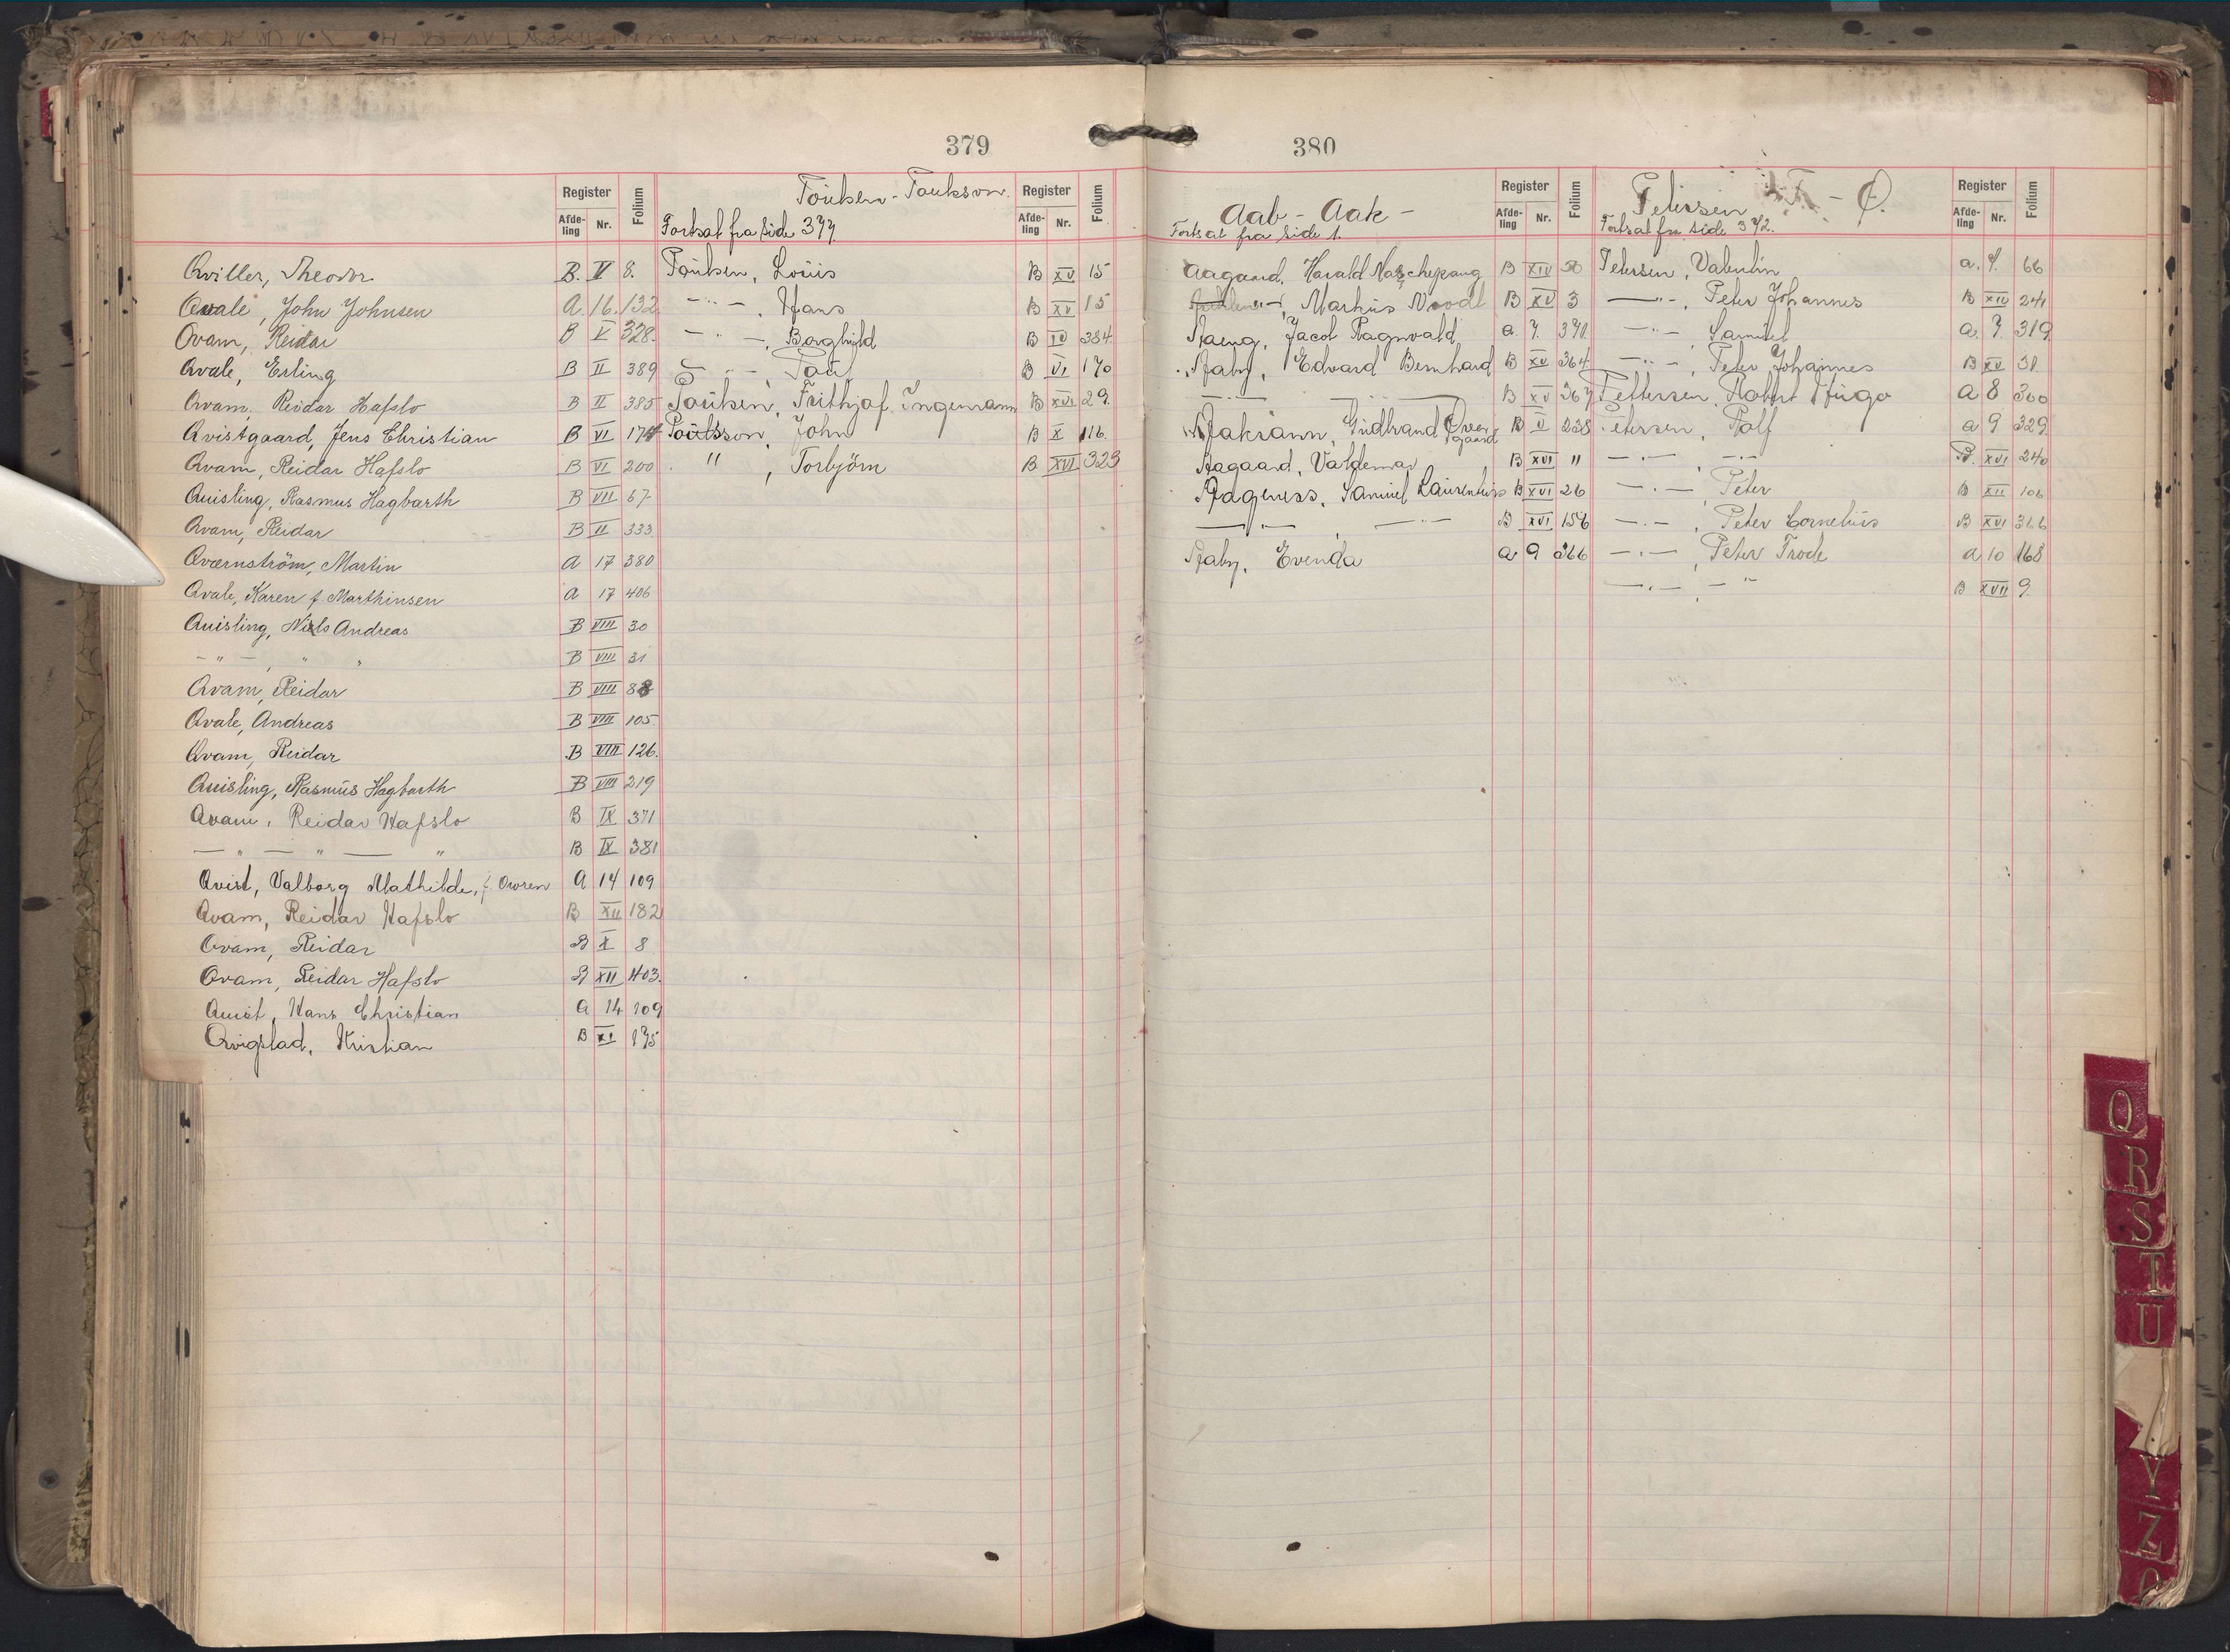 379
Register
Afde-
ling
Nr.
Folium
Qviller, Theodor B. V 8.
Qvale, John Johnsen A. 16. 132
Qvam, Reidar B V 328.
Qvale, Erling B II 389
Qvam, Reidar Hafslo B II 385
Qvistgaard, Jens Christian B VI 174
Qvam, Reidar Hafslo B VI 200
Quisling, Rasmus Hagbarth B VII 67
Qvam, Reidar B II 333
Qværnström, Martin A 17 380
Qvale, Karen f. Marthinsen A 17 406
Quisling, Niels Andreas B VIII 30
— " — , " " B VIII 31
Qvam, Reidar B VIII 88
Qvale, Andreas B VIII 105
Qvam, Reidar B VIII 126.
Quisling, Rasmus Hagbarth B VIII 219
Qvam, Reidar Hafslo B IX 371
— " — " — " B IX 381
Qvist, Valborg Mathilde, f. Owren A 14 109
Qvam, Reidar Hafslo B XII 182
Qvam, Reidar B X 8
Qvam, Reidar Hafslo B XII 403.
Quist, Hans Christian A 14 109
Qvigstad, Kristian B XI 175
Poulsen - Paulsson.
Fortsat fra side 377.
Register
Afde-
ling
Nr.
Folium
Poulsen, Louis B XV 15
— " — , Hans B XV 15
— " — , Borghild B IV 384.
— " — , Poul B VI 170
Poulsen, Frithjof Ingemann B XVI 29.
Poulsson, John B X 116.
" , Torbjörn B XVI 323
380
Aab - Aak -
Fortsat fra side 1.
Register
Afde-
ling
Nr.
Folium
Aagaard, Harald B XIV 50
Markus B XV 3
Jacob Ragnvald a. 7. 370.
Aaby, Edvard Bernhard B XV 364
— " — — " — B XV 367
Gudbrand B V 238
Aagaard, Valdemar B XVI 11
Aagenæss, Samuel Laurentius B XVI 26
— " — , — " — B XVI 156
Aaby, Evenda a 9 266
Petersen P - Ø.
Fortsat fra side 342.
Register
Afde-
ling
Nr.
Folium
Petersen, Valentin a. 7. 66
— " — , Peter Johannes B XIV 241
— " — , Samuel a. 7. 319.
— " — , Peter Johannes B XV 31.
Pettersen, Robert Hugo a 8 300
Petersen, Rolf a 9 329.
— " — , — " — B. XVI 240
— " — , Peter B XII 106
— " — , Peter Cornelius B XVI 366
— " — , Peter Frode a 10 168
— " — , — " B XVII 9.
Q
R
S
T
U
Y
Z